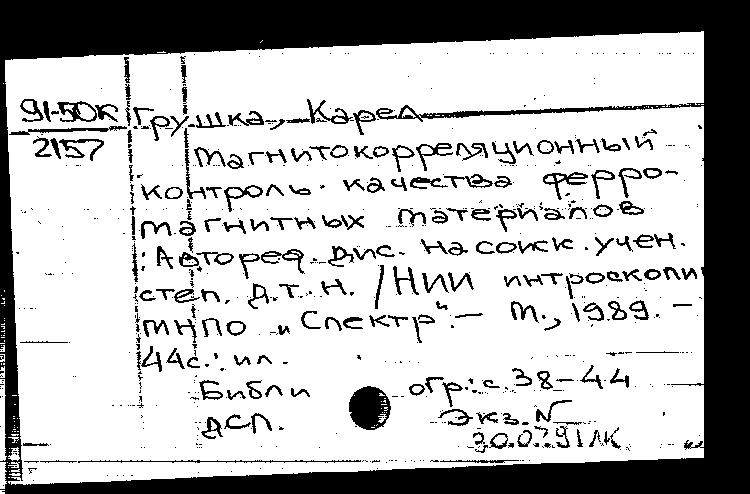 91-50К Грушка, Карел
2157
Магнитокорреляционный
контроль качества ферро-
магнитных материалов
: Автореф. дис. на соиск. учен.
степ. д.т.н. / НИИ интроскопии
МНПО "Спектр". – М., 1989. –
44с.: ил.
Библиогр.: с. 38-44
ДСП. Экз. N
30.07.91 ЛК